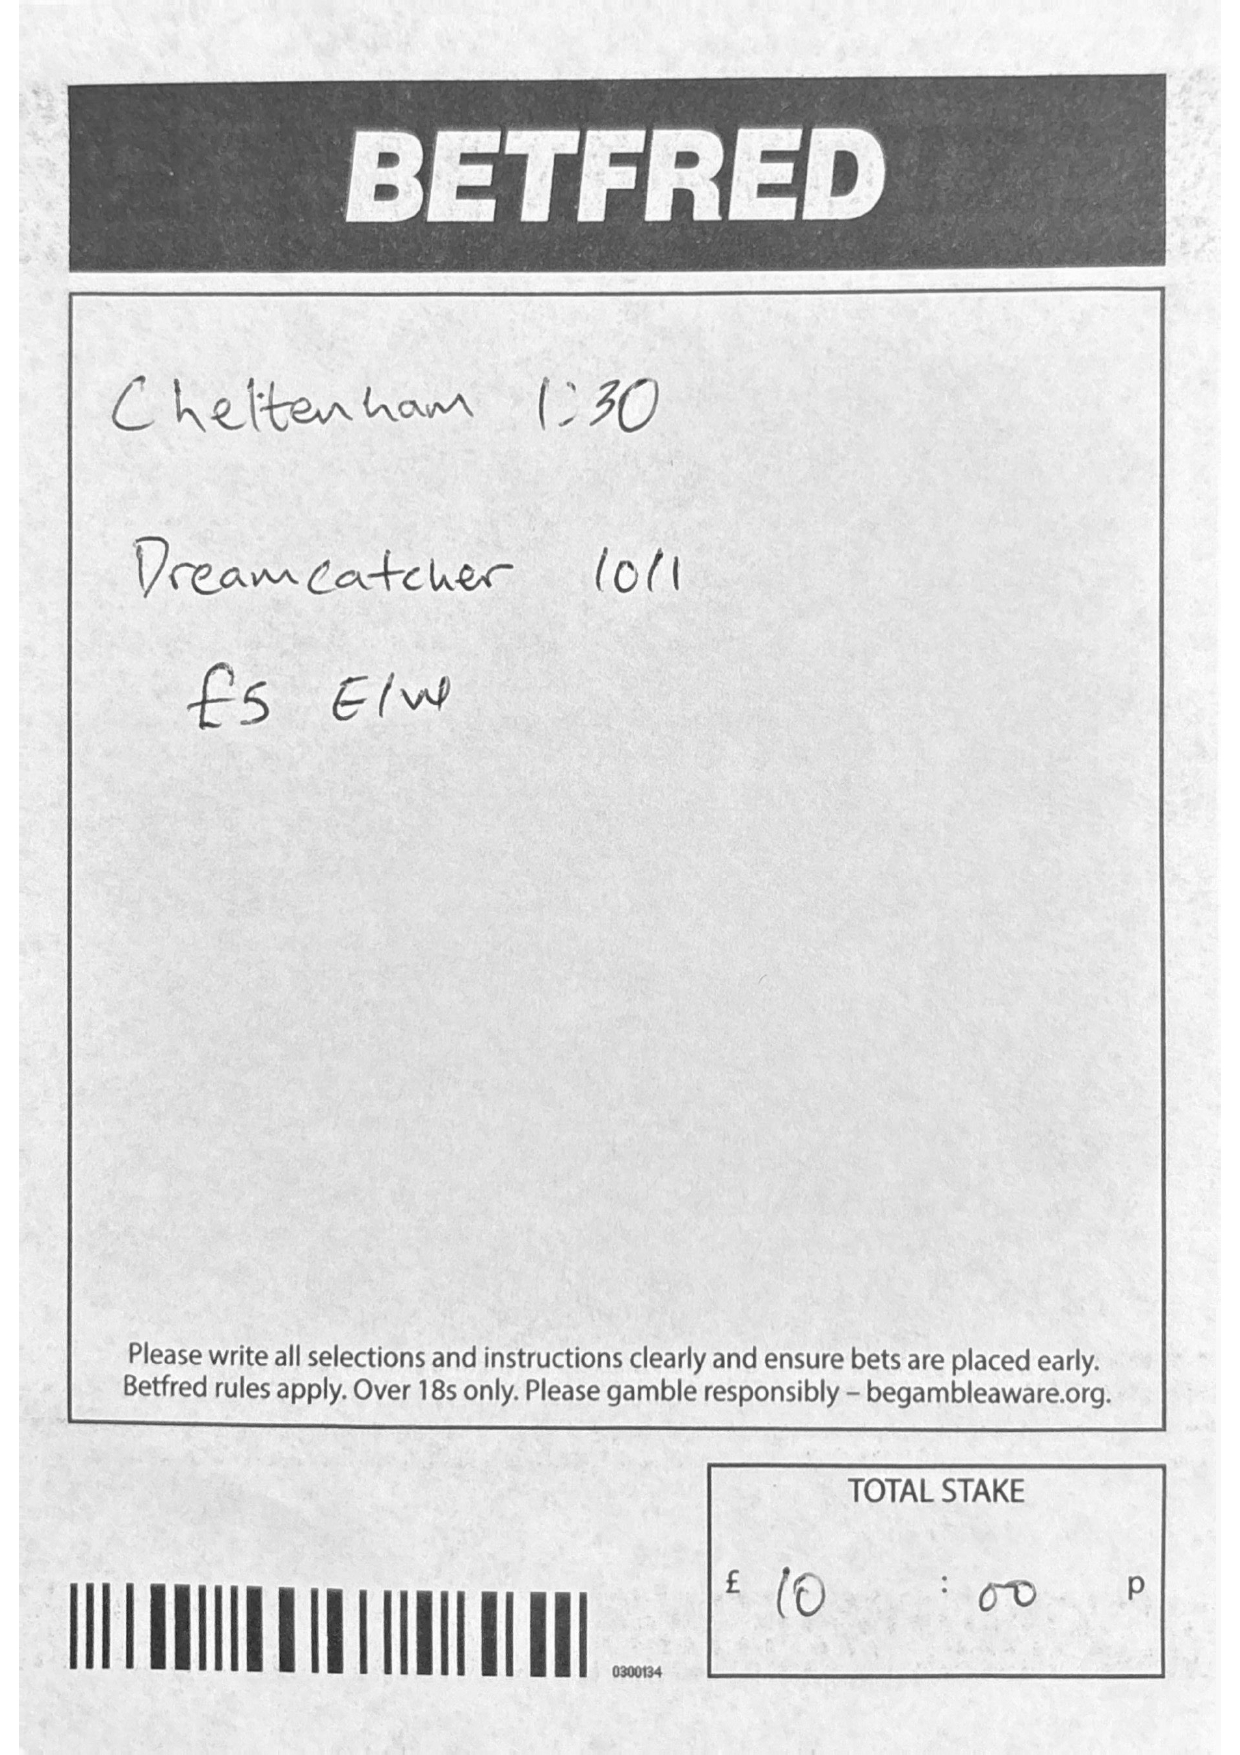 BETFRED
Cheltenham 1:30
Dreamcatcher 10/1
£5 E/W
Please write all selections and instructions clearly and ensure bets are placed early.
Betfred rules apply. Over 18s only. Please gamble responsibly – begambleaware.org.
TOTAL STAKE
£ 10 : 00 p
0300134